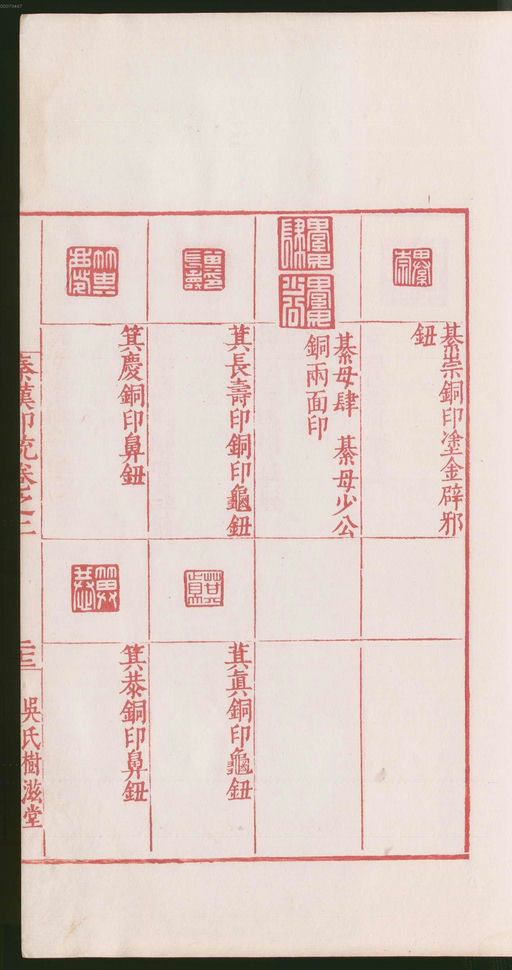 綦崇銅印塗金辟邪
鈕
綦母肆 綦母少公
銅兩面印
萁長壽印銅印龜鈕
萁眞銅印龜鈕
箕慶銅印鼻鈕
箕㳟銅印鼻鈕
秦漢印統卷之三
二三
吳氏樹滋堂
00073467